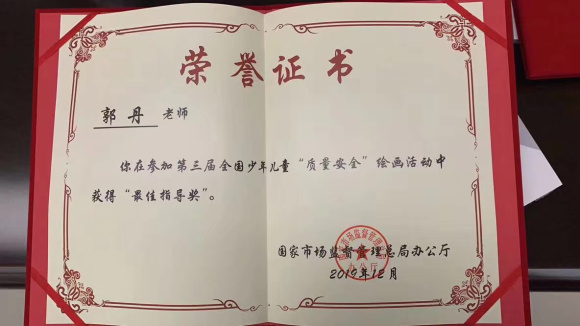 荣誉证书
郭丹 老师
你在参加第三届全国少年儿童“质量安全”绘画活动中
获得“最佳指导奖”。
国家市场监督管理总局办公厅
2019年12月